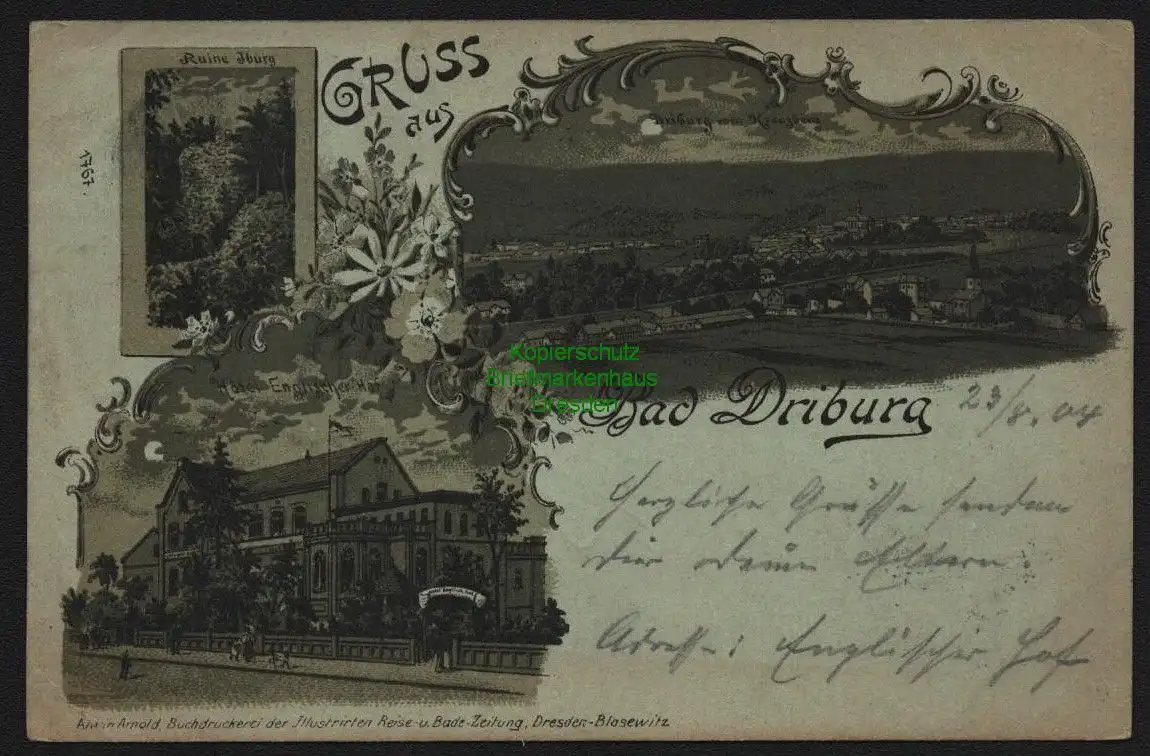 Ruine Iburg
GRUSS
aus
Driburg vom
1767.
Englischer Hof
Kopierschutz
Briefmarkenhaus
Dresden
Bad Driburg
23/8. 04
Herzliche Grüsse senden
Dir deine Eltern.
Adresse: Englischer Hof
Alwin Arnold, Buchdruckerei der Illustrirten Reise- u. Bade-Zeitung, Dresden-Blasewitz